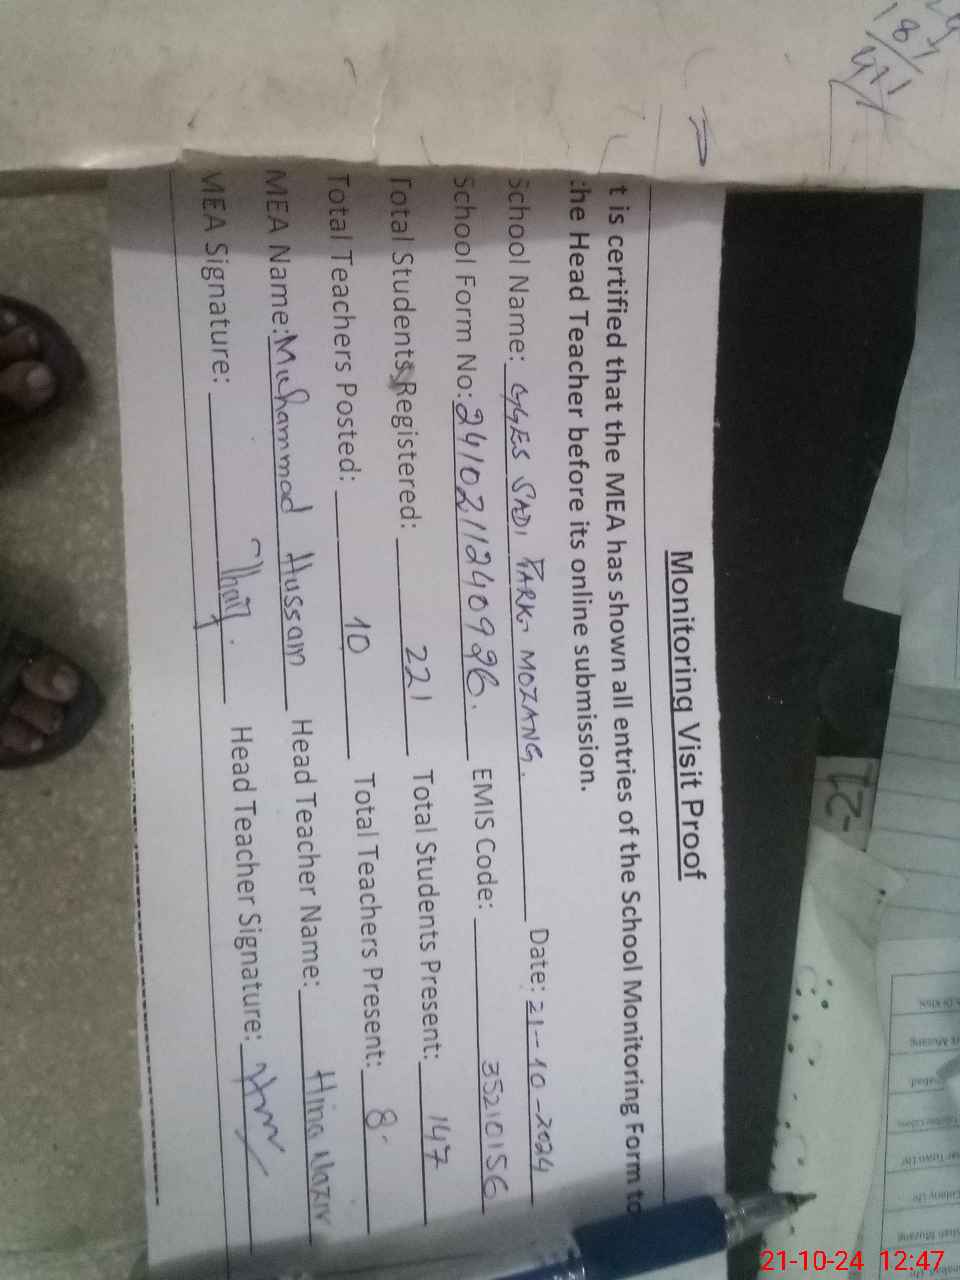 Monitoring Visit Proof
t is certified that the MEA has shown all entries of the School Monitoring Form to
the Head Teacher before its online submission.
School Name: GGES SADI PARK MOZANG. Date: 21-10-2024
School Form No: 2410211240996. EMIS Code: 35210156
Total Students Registered: 221 Total Students Present: 147
Total Teachers Posted: 10 Total Teachers Present: 8
MEA Name: Muhammad Hussam Head Teacher Name: Hina Nazir
MEA Signature: Head Teacher Signature:
-21
187
471
21-10-24 12:47